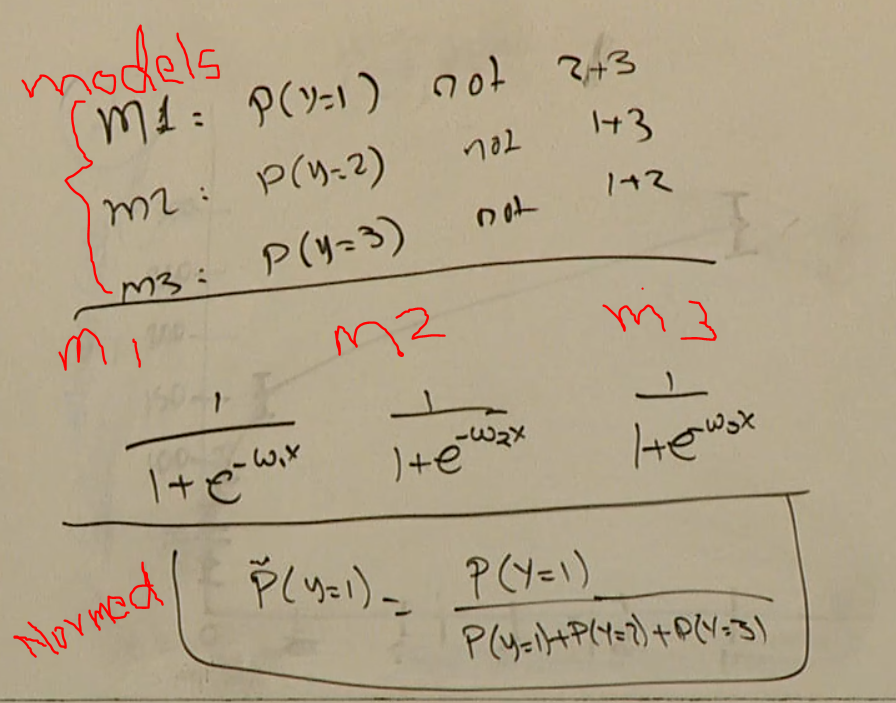 models
m1: P(y=1) not 2+3
m2: P(y=2) not 1+3
m3: P(y=3) not 1+2
m1 m2 m3
1/(1+e^{-ω₁x}) 1/(1+e^{-ω₂x}) 1/(1+e^{-ω₃x})
Normed P̆(y=1) = P(Y=1)/(P(y=1)+P(Y=2)+P(Y=3))